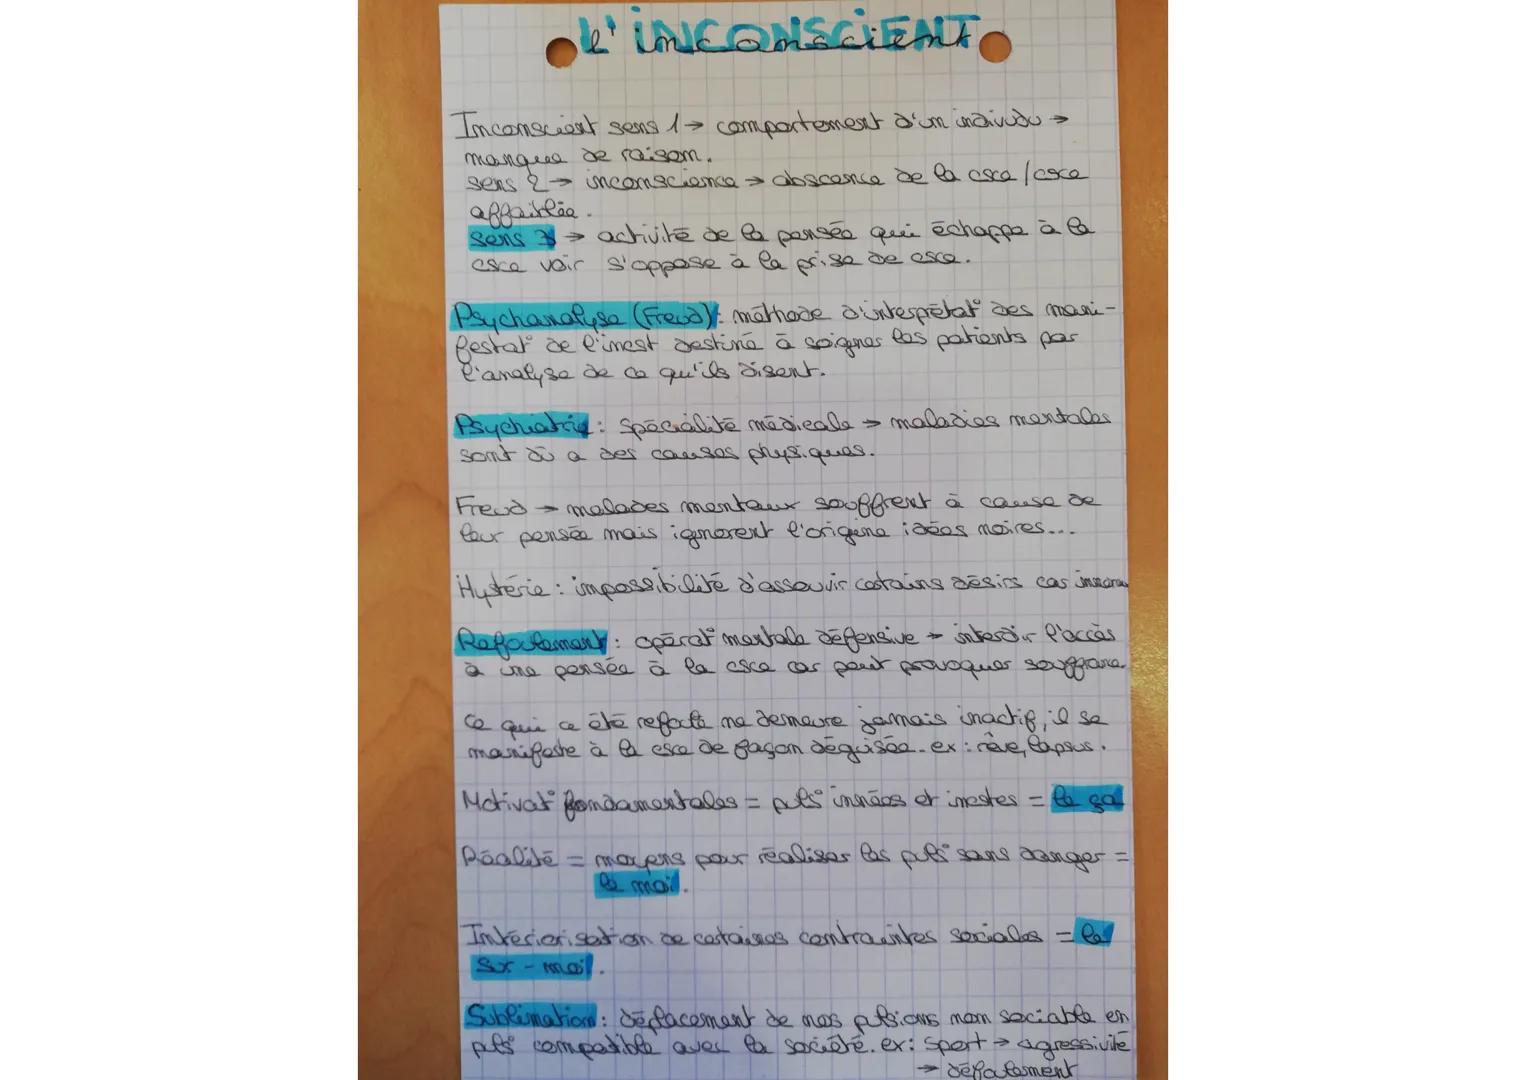 L'INCONSCIENT
l'inconscient
Inconscient sens 1 → comportement d'un individu →
manque de raison.
sens 2 → inconscience → abscence de la csce / csce
affaiblie.
sens 3 → activité de la pensée qui échappe à la
csce voir s'oppose à la prise de csce.
Psychanalyse (Freud) : méthode d'interprétat° des mani-
festat° de l'incst destiné à soigner les patients par
l'analyse de ce qu'ils disent.
Psychiatrie : spécialité médicale → maladies mentales
sont dû a des causes physiques.
Freud → malades mentaux souffrent à cause de
leur pensée mais ignorent l'origine idées noires...
Hystérie : impossibilité d'assouvir certains désirs car
Refoulement : opérat° mentale défensive → interdir l'accès
à une pensée à la csce car peut provoquer souffrance
Ce qui a été refoulé ne demeure jamais inactif, il se
manifeste à la csce de façon déguisée. ex : rêve, lapsus.
Motivat° fondamentales = puls° innées et incstes = le ça
Réalité = moyens pour réaliser les puls° sans danger =
le moi.
Intériorisation de certaines contraintes sociales = le
sur-moi.
Sublimation : déplacement de nos pulsions non sociable en
puls° compatible avec la société. ex : sport → agressivité
→ défoulement